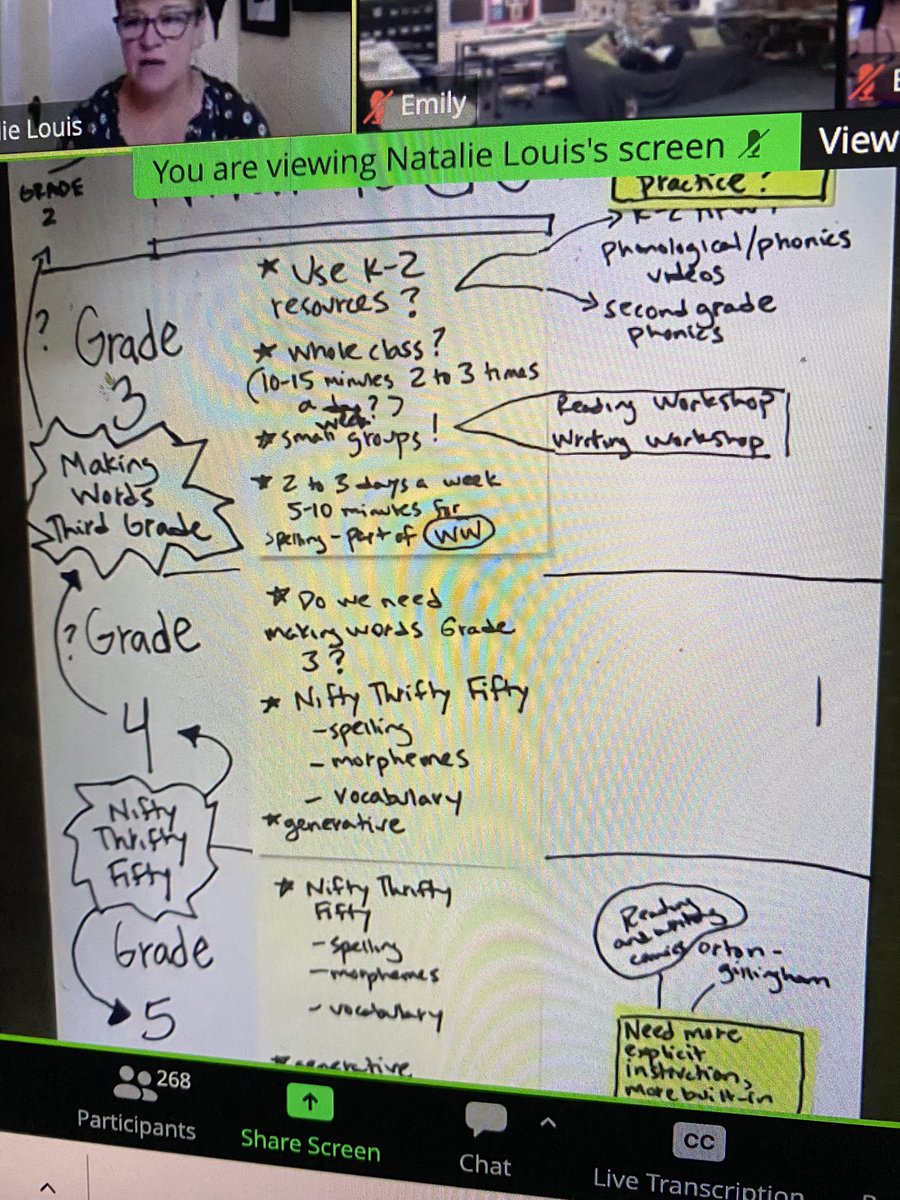 lie Louis
Emily
You are viewing Natalie Louis's screen
View
GRADE
2
practice?
phonological/phonics
videos
second grade
phonics
* Use K-2
resources?
? Grade
3
* whole class?
(10-15 minutes 2 to 3 times
a day?)
week
* small groups!
Reading Workshop
Writing Workshop
Making
Words
Third Grade
* 2 to 3 days a week
5-10 minutes for
spelling - part of WW
? Grade
4
* Do we need
making words Grade
3?
* Nifty Thrifty Fifty
- spelling
- morphemes
- vocabulary
* generative
Nifty
Thrifty
Fifty
Grade
5
* Nifty Thrifty
Fifty
- spelling
- morphemes
- vocabulary
* generative
Reading
and writing
orton-
gillingham
Need more
explicit
instruction,
more built-in
268
Participants
Share Screen
Chat
CC
Live Transcription